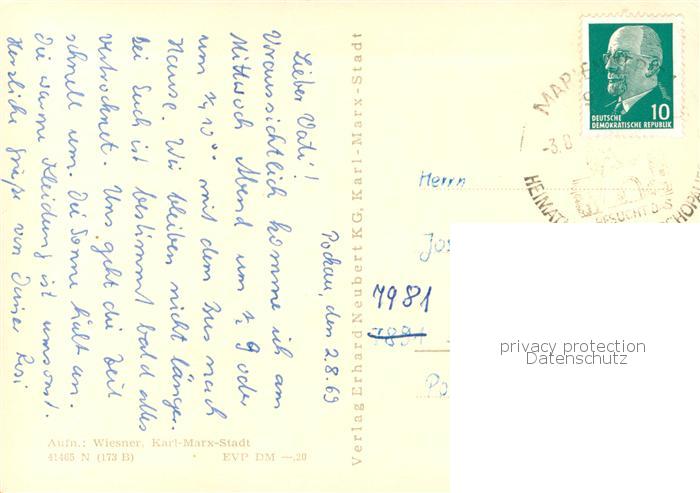 Pockau, den 2.8.69
Lieber Vati!
Voraussichtlich komme ich am
Mittwoch Abend um ½ 9 oder
um ½ 10⁰⁰ mit dem Bus nach
Hause. Wir bleiben nicht länger.
Bei Euch ist bestimmt bald alles
vertrocknet. Uns geht die Zeit
schnell um. Die Sonne hält an.
Die warme Kleidung ist umsonst.
Herzliche Grüße von Deiner Rosi
Aufn.: Wiesner, Karl-Marx-Stadt
41465 N (173 B) · EVP DM —,20
Verlag Erhard Neubert KG, Karl-Marx-Stadt
DEUTSCHE
DEMOKRATISCHE REPUBLIK
10
MARIENBERG
-3.8
HEIMAT
BESUCHT DAS
SCHOPAU
Herrn
Jo
7981
7891
Po
privacy protection
Datenschutz